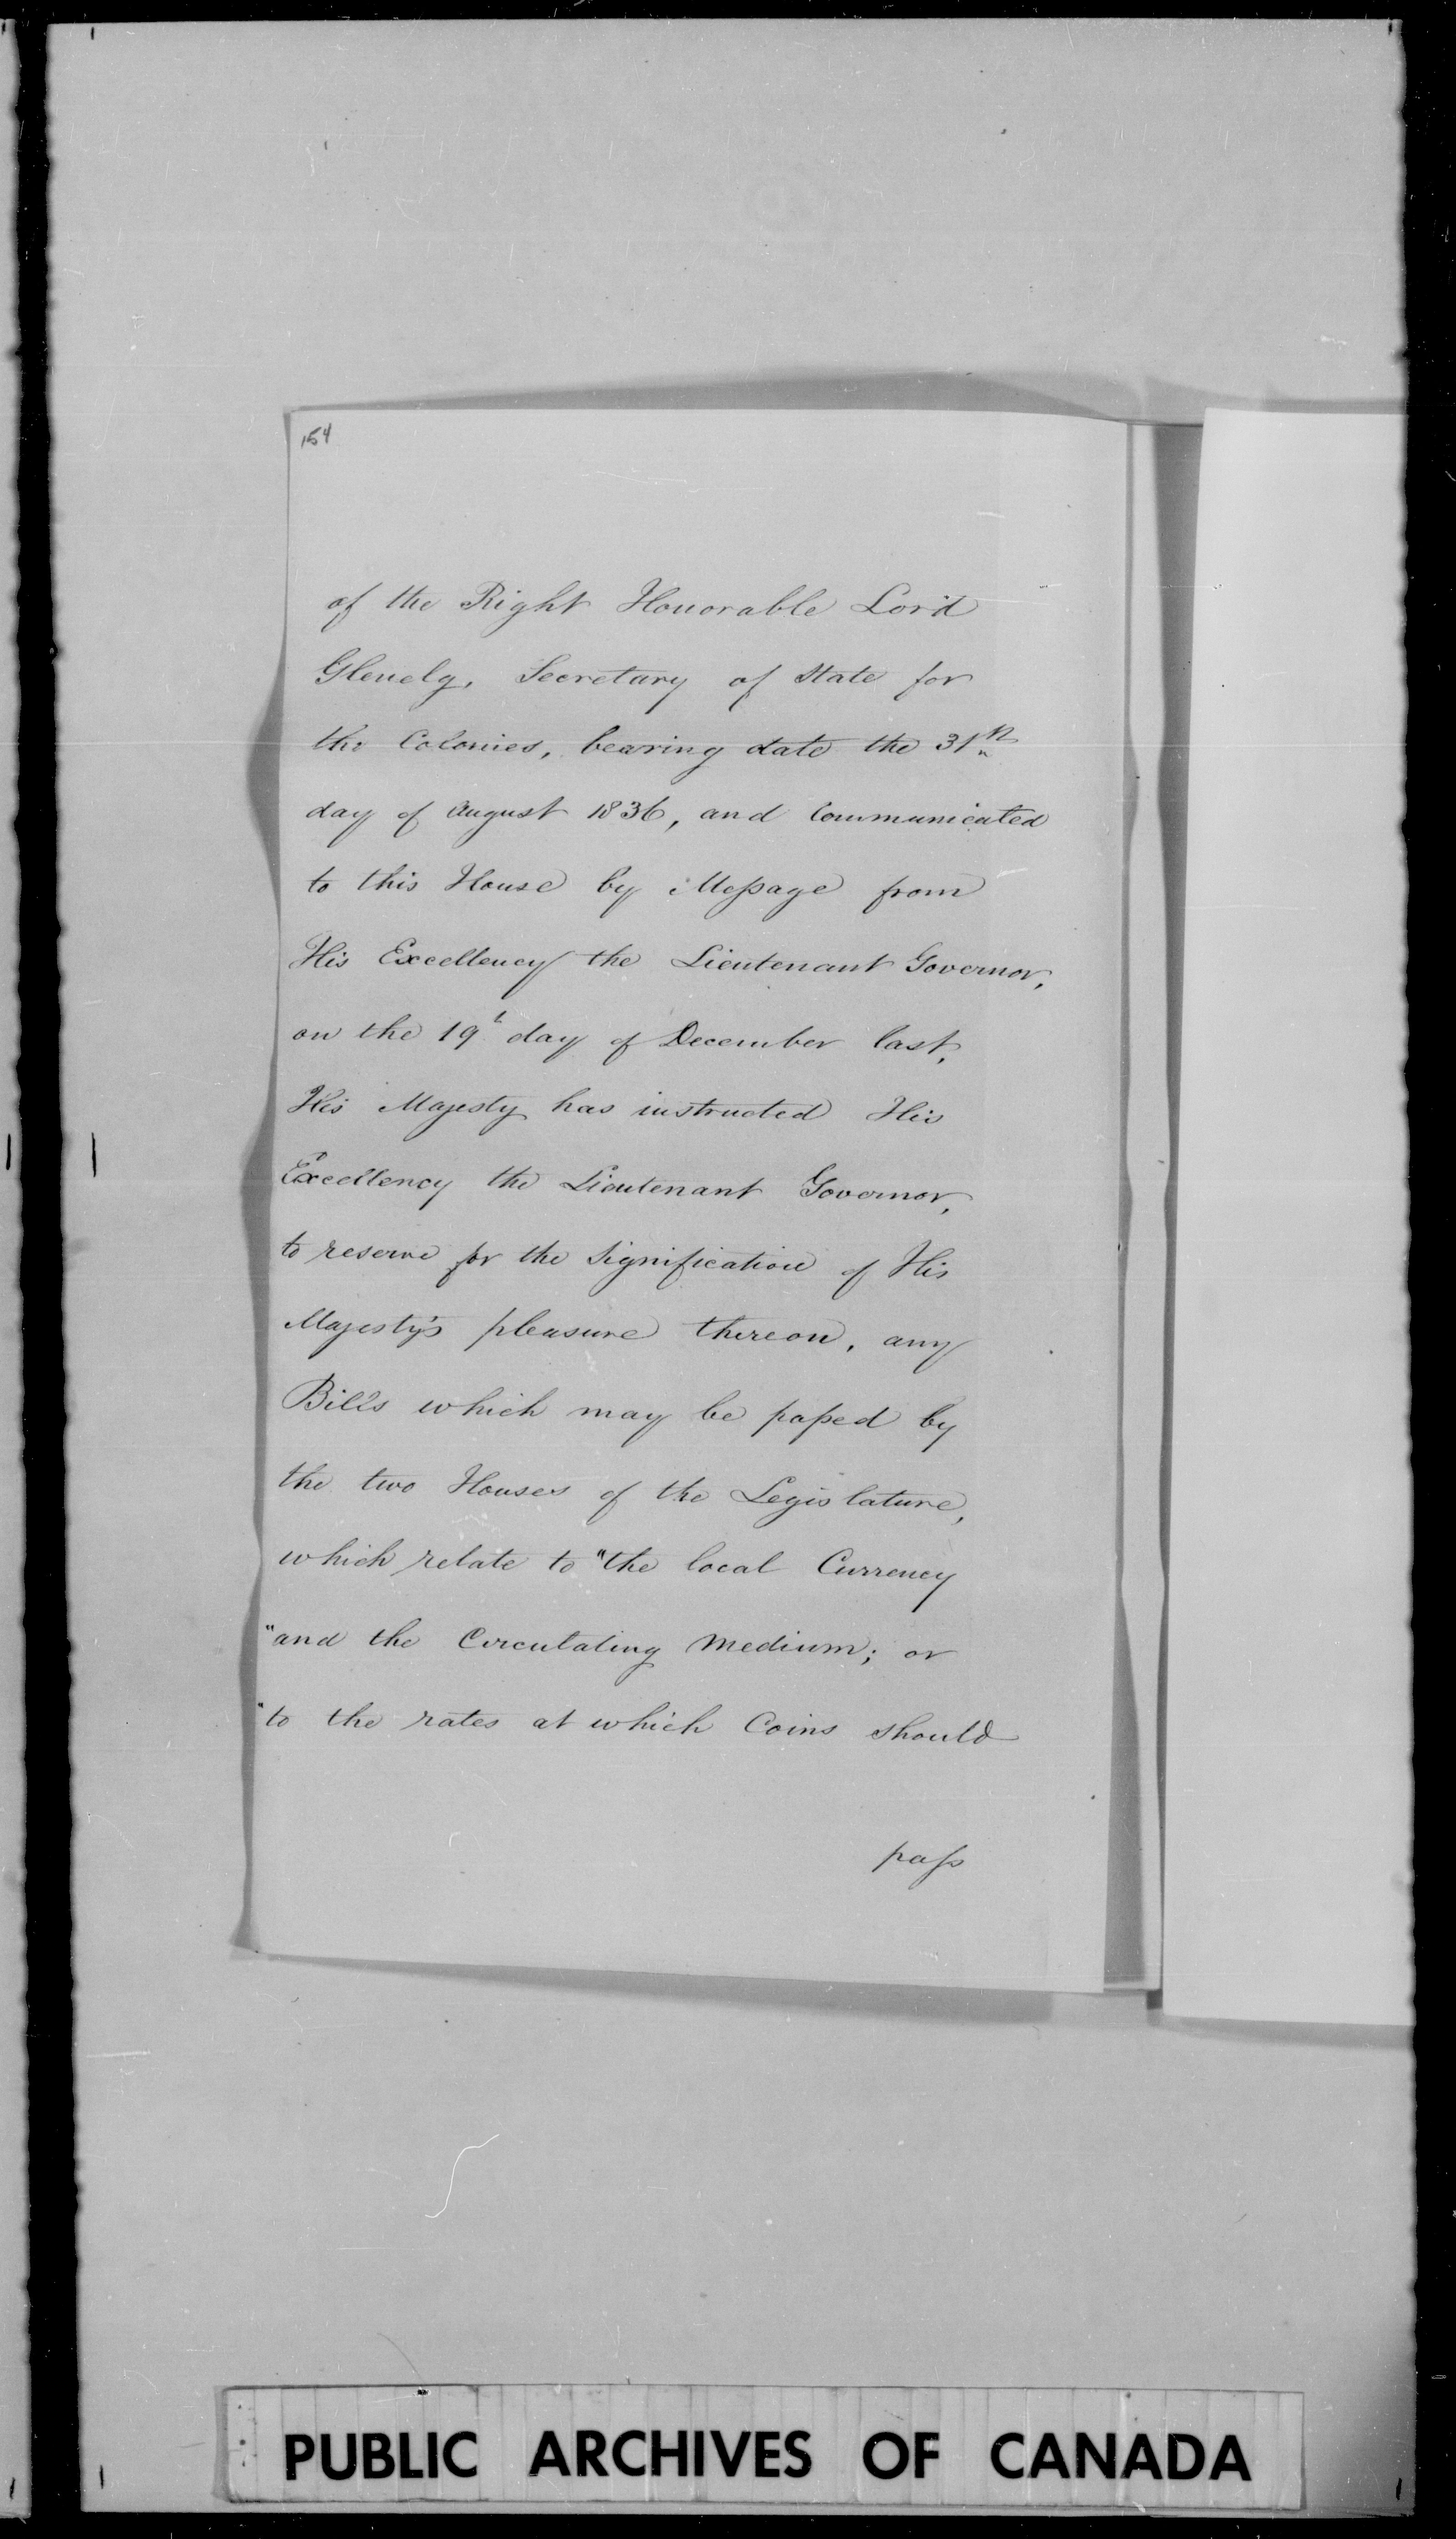 154
of the Right Honorable Lord
Glenelg, Secretary of State for
the Colonies, bearing date the 31st
day of August 1836, and Communicated
to this House by Meſsage from
His Excellency the Lieutenant Governor,
on the 19t day of December last,
His Majesty has instructed His
Excellency the Lieutenant Governor,
to reserve for the Signification of His
Majesty's pleasure thereon, any
Bills which may be paſsed by
the two Houses of the Legislature,
which relate to "the local Currency
"and the Circulating Medium; or
"to the rates at which Coins should
paſs
PUBLIC ARCHIVES OF CANADA